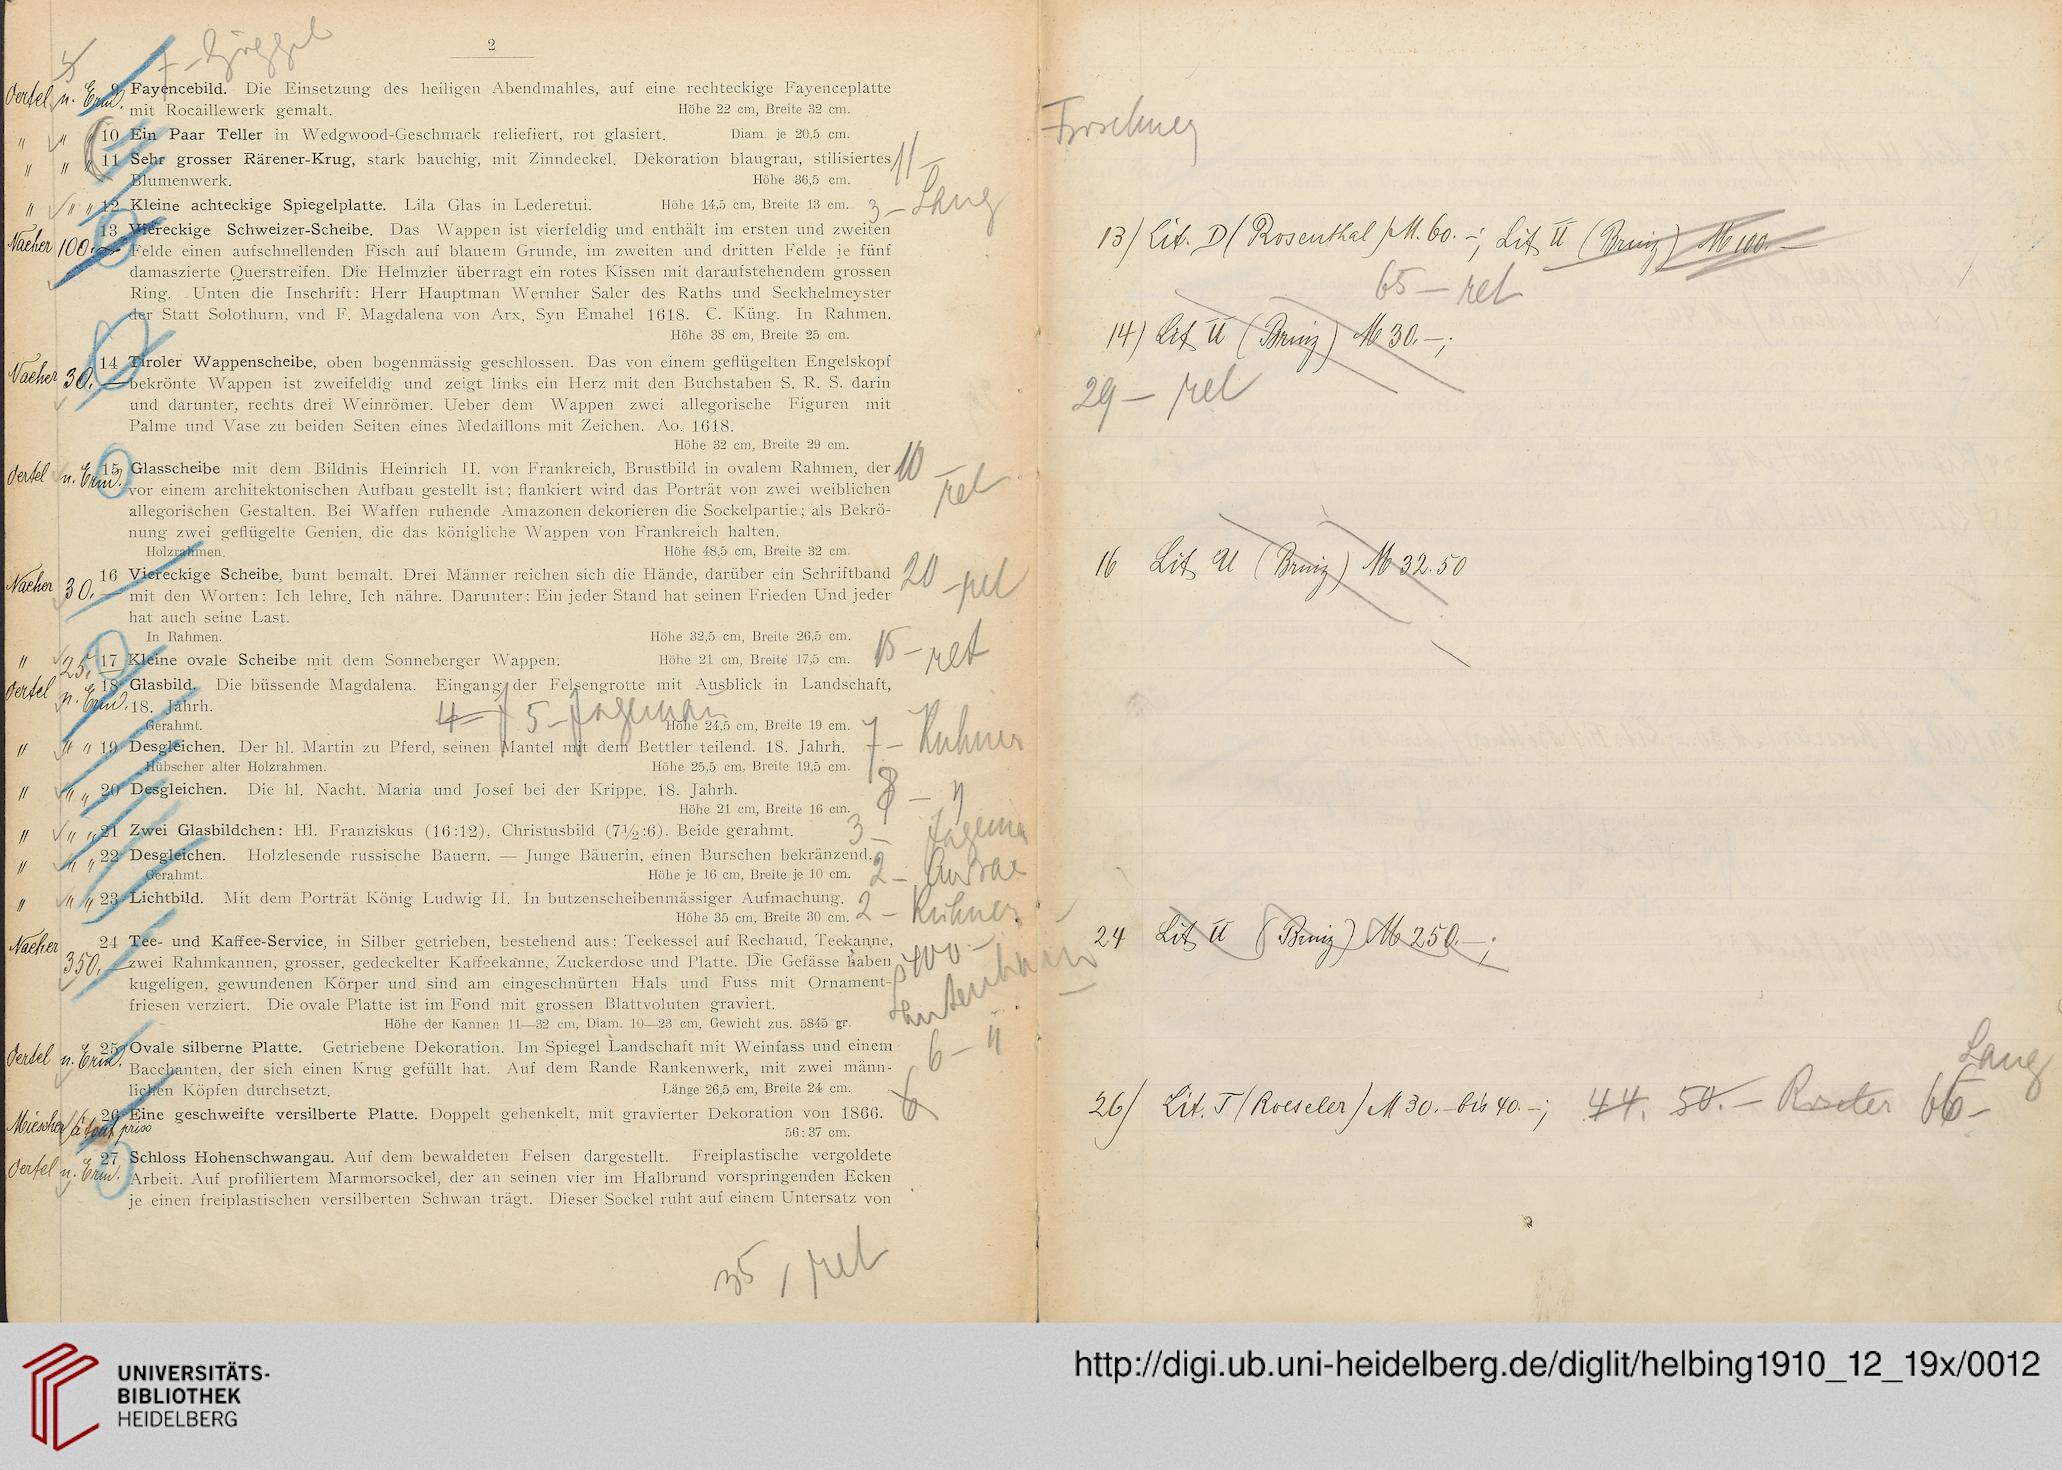 2
7 -
Oertel u. Erm. 9 Fayencebild. Die Einsetzung des heiligen Abendmahles, auf eine rechteckige Fayenceplatte
mit Rocaillewerk gemalt. Höhe 22 cm, Breite 32 cm.
" " " 10 Ein Paar Teller in Wedgwood-Geschmack reliefiert, rot glasiert. Diam. je 20,5 cm.
" " " 11 Sehr grosser Rärener-Krug, stark bauchig, mit Zinndeckel. Dekoration blaugrau, stilisiertes 11 –
Blumenwerk. Höhe 36,5 cm.
" " " 12 Kleine achteckige Spiegelplatte. Lila Glas in Lederetui. Höhe 14,5 cm, Breite 13 cm. 3 – Lang
Nacher 100.– 13 Viereckige Schweizer-Scheibe. Das Wappen ist vierfeldig und enthält im ersten und zweiten
Felde einen aufschnellenden Fisch auf blauem Grunde, im zweiten und dritten Felde je fünf
damaszierte Querstreifen. Die Helmzier überragt ein rotes Kissen mit daraufstehendem grossen
Ring. Unten die Inschrift: Herr Hauptman Wernher Saler des Raths und Seckhelmeyster
der Statt Solothurn, vnd F. Magdalena von Arx, Syn Emahel 1618. C. Küng. In Rahmen.
Höhe 38 cm, Breite 25 cm.
Nacher 30.– 14 Tiroler Wappenscheibe, oben bogenmässig geschlossen. Das von einem geflügelten Engelskopf
bekrönte Wappen ist zweifeldig und zeigt links ein Herz mit den Buchstaben S. R. S. darin
und darunter, rechts drei Weinrömer. Ueber dem Wappen zwei allegorische Figuren mit
Palme und Vase zu beiden Seiten eines Medaillons mit Zeichen. Ao. 1618.
Höhe 32 cm, Breite 29 cm.
Oertel u. Erm. 15 Glasscheibe mit dem Bildnis Heinrich II. von Frankreich, Brustbild in ovalem Rahmen, der 10
vor einem architektonischen Aufbau gestellt ist; flankiert wird das Porträt von zwei weiblichen – ret
allegorischen Gestalten. Bei Waffen ruhende Amazonen dekorieren die Sockelpartie; als Bekrö-
nung zwei geflügelte Genien, die das königliche Wappen von Frankreich halten.
Holzrahmen. Höhe 48,5 cm, Breite 32 cm.
Nacher 30.– 16 Viereckige Scheibe, bunt bemalt. Drei Männer reichen sich die Hände, darüber ein Schriftband 20 – ret
mit den Worten: Ich lehre, Ich nähre. Darunter: Ein jeder Stand hat seinen Frieden Und jeder
hat auch seine Last.
In Rahmen. Höhe 32,5 cm, Breite 26,5 cm.
" 25.– 17 Kleine ovale Scheibe mit dem Sonneberger Wappen. Höhe 21 cm, Breite 17,5 cm. 15 – ret
Oertel u. Erm. 18 Glasbild. Die büssende Magdalena. Eingang der Felsengrotte mit Ausblick in Landschaft,
18. Jahrh. 4 – 5 –
Gerahmt. Höhe 24,5 cm, Breite 19 cm.
" " " 19 Desgleichen. Der hl. Martin zu Pferd, seinen Mantel mit dem Bettler teilend. 18. Jahrh. 7 –
Hübscher alter Holzrahmen. Höhe 25,5 cm, Breite 19,5 cm.
" " " 20 Desgleichen. Die hl. Nacht. Maria und Josef bei der Krippe. 18. Jahrh. 8 – "
Höhe 21 cm, Breite 16 cm.
" " " 21 Zwei Glasbildchen: Hl. Franziskus (16:12), Christusbild (7½:6). Beide gerahmt. 3 –
" " " 22 Desgleichen. Holzlesende russische Bauern. — Junge Bäuerin, einen Burschen bekränzend.
Gerahmt. Höhe je 16 cm, Breite je 10 cm. 2 –
" " " 23 Lichtbild. Mit dem Porträt König Ludwig II. In butzenscheibenmässiger Aufmachung.
Höhe 35 cm, Breite 30 cm. 2 –
Nacher 350.– 24 Tee- und Kaffee-Service, in Silber getrieben, bestehend aus: Teekessel auf Rechaud, Teekanne,
zwei Rahmkannen, grosser, gedeckelter Kaffeekanne, Zuckerdose und Platte. Die Gefässe haben
kugeligen, gewundenen Körper und sind am eingeschnürten Hals und Fuss mit Ornament-
friesen verziert. Die ovale Platte ist im Fond mit grossen Blattvoluten graviert.
Höhe der Kannen 11—32 cm, Diam. 10—23 cm, Gewicht zus. 5845 gr.
Oertel u. Erm. 25 Ovale silberne Platte. Getriebene Dekoration. Im Spiegel Landschaft mit Weinfass und einem 6 – "
Bacchanten, der sich einen Krug gefüllt hat. Auf dem Rande Rankenwerk, mit zwei männ-
lichen Köpfen durchsetzt. Länge 26,5 cm, Breite 24 cm.
Miescher / à tout prix 26 Eine geschweifte versilberte Platte. Doppelt gehenkelt, mit gravierter Dekoration von 1866.
56:37 cm.
Oertel u. Erm. 27 Schloss Hohenschwangau. Auf dem bewaldeten Felsen dargestellt. Freiplastische vergoldete
Arbeit. Auf profiliertem Marmorsockel, der an seinen vier im Halbrund vorspringenden Ecken
je einen freiplastischen versilberten Schwan trägt. Dieser Sockel ruht auf einem Untersatz von
35 / ret
13) Lit. D (Rosenthal) M. 60.–; Lit. U (Brinz) M 100.–
65 – ret
14) Lit U (Brinz) M 30.–;
29 – ret
16 Lit U (Brinz) M 32.50
24 Lit U (Brinz) M 250.–;
Lang
26) Lit. T (Roeseler) M 30.– bis 40.–; 44. 50. – 66 –
UNIVERSITÄTS-
BIBLIOTHEK
HEIDELBERG
http://digi.ub.uni-heidelberg.de/diglit/helbing1910_12_19x/0012